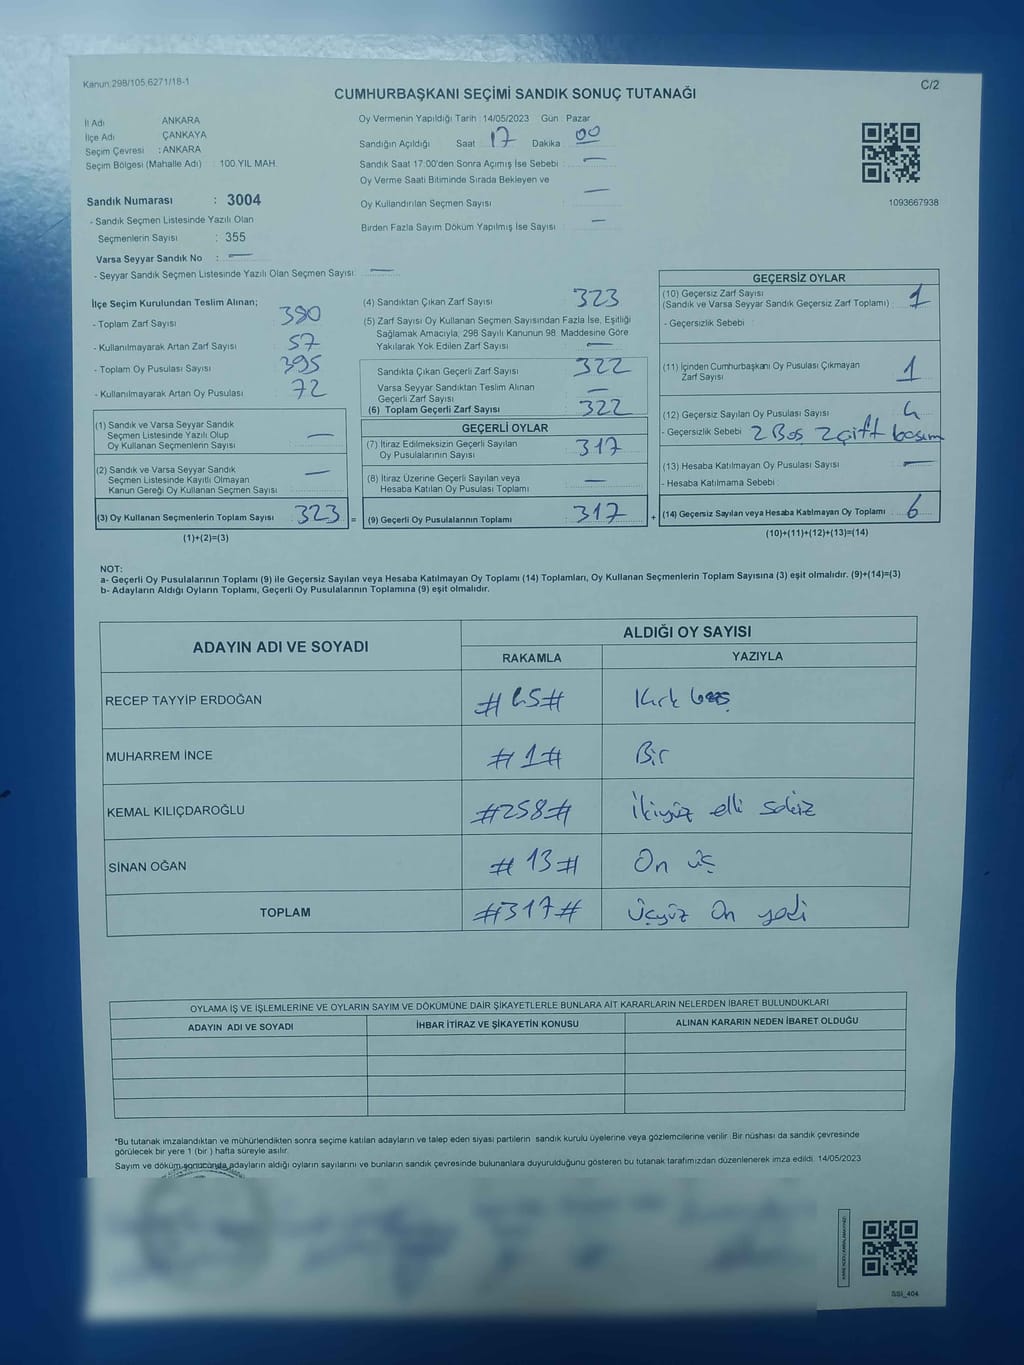 Kanun:298/105,6271/18-1
C/2
CUMHURBAŞKANI SEÇİMİ SANDIK SONUÇ TUTANAĞI
İl Adı ANKARA
İlçe Adı ÇANKAYA
Seçim Çevresi : ANKARA
Seçim Bölgesi (Mahalle Adı) : 100.YIL MAH.
Sandık Numarası : 3004
- Sandık Seçmen Listesinde Yazılı Olan
Seçmenlerin Sayısı : 355
Varsa Seyyar Sandık No : —
- Seyyar Sandık Seçmen Listesinde Yazılı Olan Seçmen Sayısı: —
Oy Vermenin Yapıldığı Tarih : 14/05/2023 Gün : Pazar
Sandığın Açıldığı Saat 17 Dakika 00
Sandık Saat 17:00'den Sonra Açımış İse Sebebi : —
Oy Verme Saati Bitiminde Sırada Bekleyen ve
Oy Kullandırılan Seçmen Sayısı : —
Birden Fazla Sayım Döküm Yapılmış İse Sayısı : —
1093667938
İlçe Seçim Kurulundan Teslim Alınan;
- Toplam Zarf Sayısı 380
- Kullanılmayarak Artan Zarf Sayısı 57
- Toplam Oy Pusulası Sayısı 395
- Kullanılmayarak Artan Oy Pusulası 72
(1) Sandık ve Varsa Seyyar Sandık
Seçmen Listesinde Yazılı Olup
Oy Kullanan Seçmenlerin Sayısı —
(2) Sandık ve Varsa Seyyar Sandık
Seçmen Listesinde Kayıtlı Olmayan
Kanun Gereği Oy Kullanan Seçmen Sayısı —
(3) Oy Kullanan Seçmenlerin Toplam Sayısı 323 =
(1)+(2)=(3)
(4) Sandıktan Çıkan Zarf Sayısı 323
(5) Zarf Sayısı Oy Kullanan Seçmen Sayısından Fazla İse, Eşitliği
Sağlamak Amacıyla; 298 Sayılı Kanunun 98. Maddesine Göre
Yakılarak Yok Edilen Zarf Sayısı —
Sandıkta Çıkan Geçerli Zarf Sayısı 322
Varsa Seyyar Sandıktan Teslim Alınan
Geçerli Zarf Sayısı —
(6) Toplam Geçerli Zarf Sayısı 322
GEÇERLİ OYLAR
(7) İtiraz Edilmeksizin Geçerli Sayılan
Oy Pusulalarının Sayısı 317
(8) İtiraz Üzerine Geçerli Sayılan veya
Hesaba Katılan Oy Pusulası Toplamı —
(9) Geçerli Oy Pusulalarının Toplamı 317 +
GEÇERSİZ OYLAR
(10) Geçersiz Zarf Sayısı
(Sandık ve Varsa Seyyar Sandık Geçersiz Zarf Toplamı) : 1
- Geçersizlik Sebebi :
(11) İçinden Cumhurbaşkanı Oy Pusulası Çıkmayan
Zarf Sayısı 1
(12) Geçersiz Sayılan Oy Pusulası Sayısı 4
- Geçersizlik Sebebi 2 Boş 2 çift basım
(13) Hesaba Katılmayan Oy Pusulası Sayısı —
- Hesaba Katılmama Sebebi :
(14) Geçersiz Sayılan veya Hesaba Katılmayan Oy Toplamı 6
(10)+(11)+(12)+(13)=(14)
NOT:
a- Geçerli Oy Pusulalarının Toplamı (9) ile Geçersiz Sayılan veya Hesaba Katılmayan Oy Toplamı (14) Toplamları, Oy Kullanan Seçmenlerin Toplam Sayısına (3) eşit olmalıdır. (9)+(14)=(3)
b- Adayların Aldığı Oyların Toplamı, Geçerli Oy Pusulalarının Toplamına (9) eşit olmalıdır.
ADAYIN ADI VE SOYADI ALDIĞI OY SAYISI
RAKAMLA YAZIYLA
RECEP TAYYİP ERDOĞAN #45# Kırk beş
MUHARREM İNCE #1# Bir
KEMAL KILIÇDAROĞLU #258# İkiyüz elli sekiz
SİNAN OĞAN #13# On üç
TOPLAM #317# Üçyüz On yedi
OYLAMA İŞ VE İŞLEMLERİNE VE OYLARIN SAYIM VE DÖKÜMÜNE DAİR ŞİKAYETLERLE BUNLARA AİT KARARLARIN NELERDEN İBARET BULUNDUKLARI
ADAYIN ADI VE SOYADI İHBAR İTİRAZ VE ŞİKAYETİN KONUSU ALINAN KARARIN NEDEN İBARET OLDUĞU
*Bu tutanak imzalandıktan ve mühürlendikten sonra seçime katılan adayların ve talep eden siyasi partilerin sandık kurulu üyelerine veya gözlemcilerine verilir. Bir nüshası da sandık çevresinde
görülecek bir yere 1 (bir ) hafta süreyle asılır.
Sayım ve döküm sonucunda adayların aldığı oyların sayılarını ve bunların sandık çevresinde bulunanlara duyurulduğunu gösteren bu tutanak tarafımızdan düzenlenerek imza edildi. 14/05/2023
SSI_404